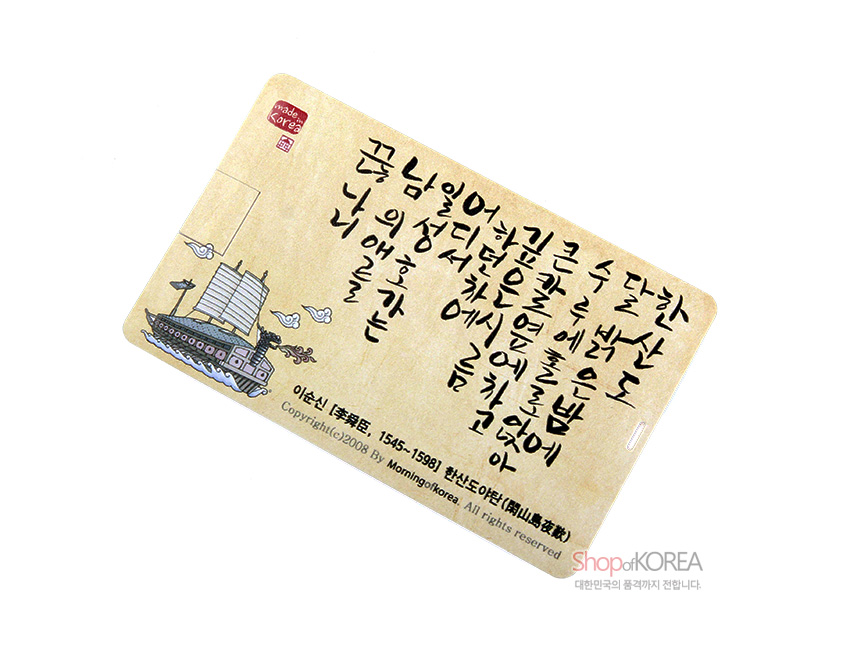 made in
Korea
한산도
달밝은밤에
수루에홀로앉아
큰칼옆에차고
깊은시름
하던차에
어디서
일성호가는
남의애를
끊나니
이순신 [李舜臣, 1545~1598] 한산도야탄(閑山島夜歎)
Copyright(c)2008 By Morningofkorea. All rights reserved
ShopofKOREA
대한민국의 품격까지 전합니다.